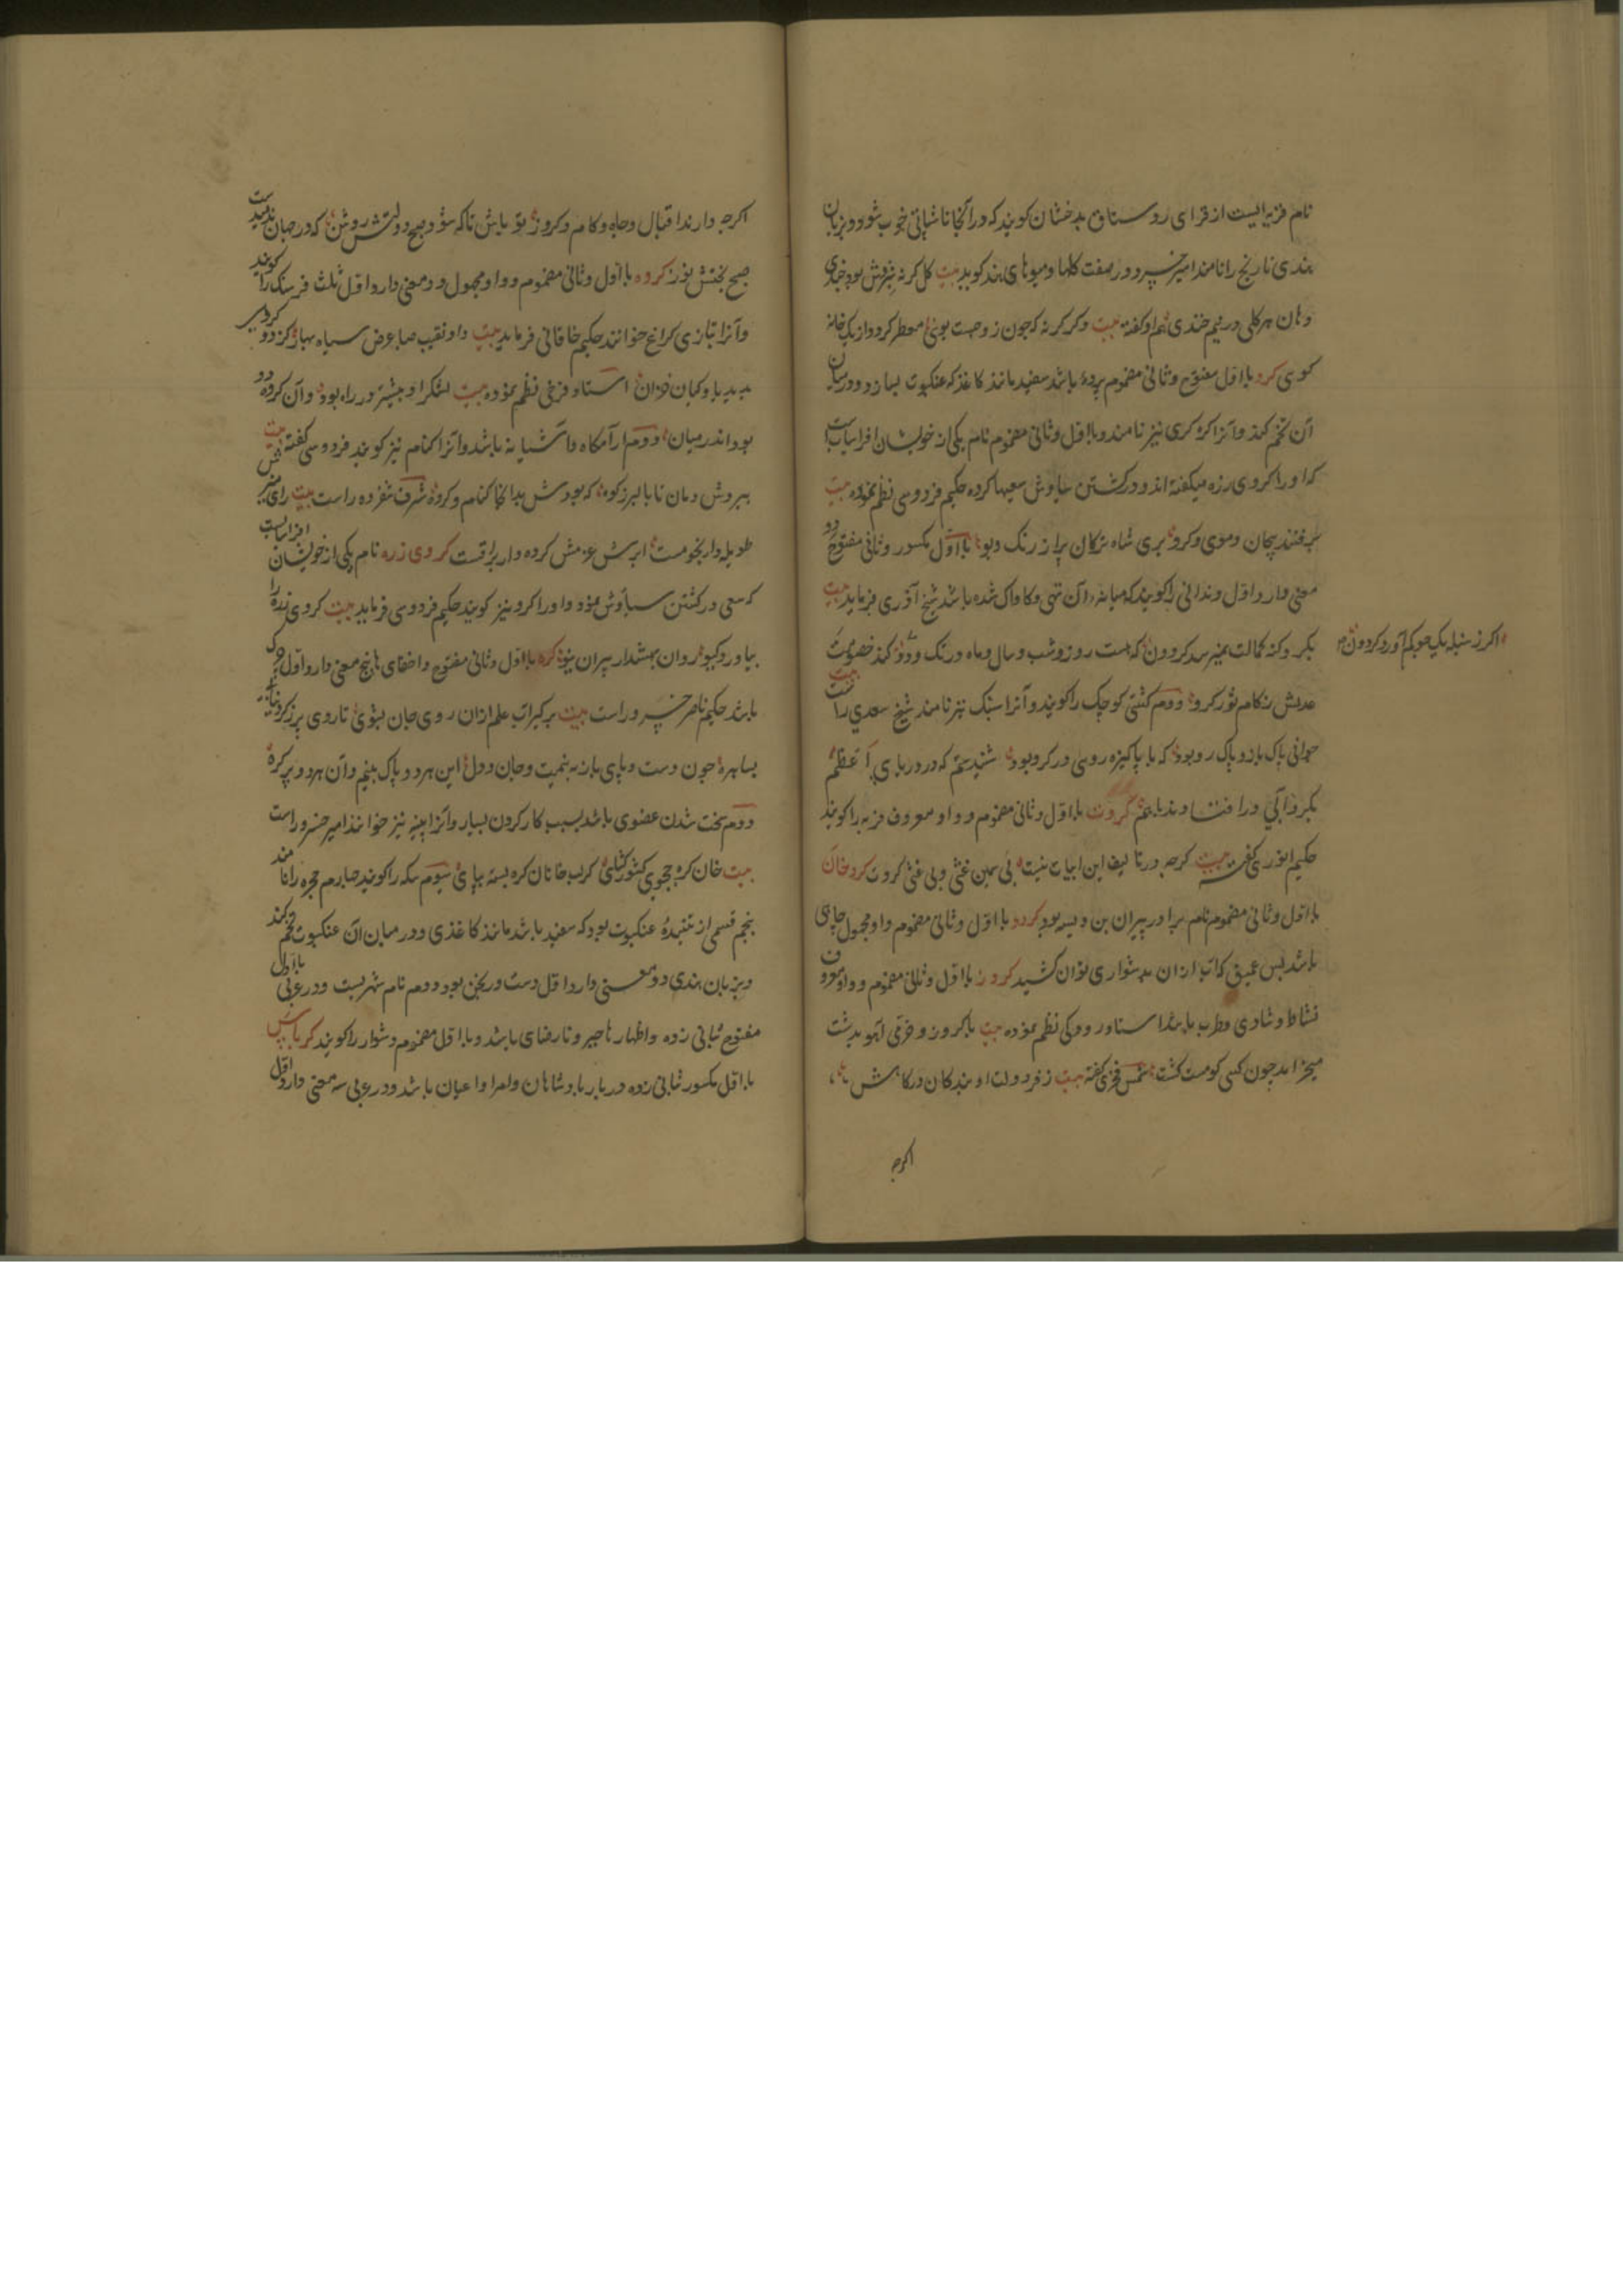 نام قریه ایست از قرای روستاق بدخشان کویند که در آنجا ناشپاتی خوب شود و بزبان
هندی نارنج را نامند امیر خسرو در صفت کلها و میوهای هند کوید بیت کل کرنه
دهان هر کلی در نیم خندی هم او کفته بیت و کر کرنه که چون معطر کردد از یک خانه
کوی کرو با اول مفتوح و ثانی مضموم پردۀ باشد سفید مانند کاغذ که عنکبوت بسازد و در میان
آن تخم کند و آنرا کره کری نیز نامند و با اول و ثانی مضموم نام یکی از خویشان افراسیاب است
که او را کروی زره میکفته اند و در کشتن سیاوش سعیها کرده حکیم فردوسی نظم نموده بیت
برفتند پیچان دموی و کروی بری شاه ترکان پر از رنک و بوی با اول مکسور و ثانی مفتوح دو
معنی دارد اول دندانی را کویند که میانه آن تهی و کاواک شده باشد شیخ آذری فرماید بیت
اکر ز سنبله یک جو بکم آورد کردون
بکر و کنه کمالت نمیرسد کردون که هست روز و شب و سال و ماه در تک و دو کند خصومت
عدیش زکام ثور کرو دوم کشتی کوچک را کویند و آنرا سنبک نیز نامند شیخ سعدی راست بیت
جوانی پاک باز و پاک رو بود که با پاکیزه روی در کرو بود شنیدستم که در دریای اعظم
بکردابی در افتادند باهم کروت با اول و ثانی مضموم و واو معروف فربه را کویند
حکیم انوری کفته بیت کرچه در تالیف این ابیات نیست بی سمین غثی و بی غثی کروت کروخان
با اول و ثانی مضموم نام برادر پیران بن ویسه بود کرود با اول و ثانی مضموم و واو مجهول چاهی
باشد بس عمیق که آب از آن بدشواری توان کشید کروز با اول و ثانی مضموم و واو معروف
نشاط و شادی و طرب باشد استاد رودکی نظم نموده بیت با کروز و خرمی آهو بدشت
میخرامد چون کسی کو مست کشت شمس فخری کفته بیت ز فر دولت او بندکان درکاهش
اکرچه
اکرچه دارند اقبال و جاه و کام و کروز تو باش تا که شود صبح دولتش روشن که در جهان ندمیدست
صبح بختش نوز کروه با اول و ثانی مضموم و واو مجهول دو معنی دارد اول ثلث فرسنک را کویند
و آنرا بتازی کراع خوانند حکیم خاقانی فرماید بیت داد نقیب صبا عرض سپاه بهار کز دو کروهی
بدید یاوکیان خزان استاد فرخی نظم نموده بیت لشکر او بیشتر در راه بود وآن کروه دو
بود اندر میان دوم آرامکاه و آشیانه باشد و آنرا کنام نیز کویند فردوسی کفته بیت
ببردش دمان تا بالبرز کوه که بودش بدانجا کنام و کروه شرف شفروه راست بیت رای
طویله دار نجومست ابرش عزمش کروه دار براقست کروی زره نام یکی از خویشان افراسیابست
که سعی در کشتن سیاوش نمود و او را کرو نیز کویند حکیم فردوسی فرماید بیت کروی زره را
بیاورد کیو روان بهشدار پیران نیو کره با اول و ثانی مفتوح و اخفای ها پنج معنی دارد اول چرک
باشد حکیم ناصر خسرو راست بیت برکیر آب علم از آن روی جان بشوی تا روی پر ز کرد
بساهره چون دست و پای باز نه بینیت و جان و دل این هر دو پاک بینم و آن هر دو پر کره
دوم سخت شدن عضوی باشد بسبب کار کردن بسیار و آنرا پینه نیز خوانند امیر خسرو راست
بیت خان کره جوی کشورکشای کز لب خانان کره بسته بپای سیوم سکه را کویند چهارم حجره را نامند
پنجم قسمی از تنیدۀ عنکبوت بود که سفید باشد مانند کاغذی و در میان آن عنکبوت تخم کند
و بزبان هندی دو معنی دارد اول دست ورنجن بود دوم نام شهریست و در عربی با اول
مفتوح بثانی زده و اظهار ها جبر و نارضای باشد و با اول مضموم دشوار را کویند کرباس
با اول مکسور بثانی زده دربار پادشاهان و امرا و اعیان باشد و در عربی سه معنی دارد اول